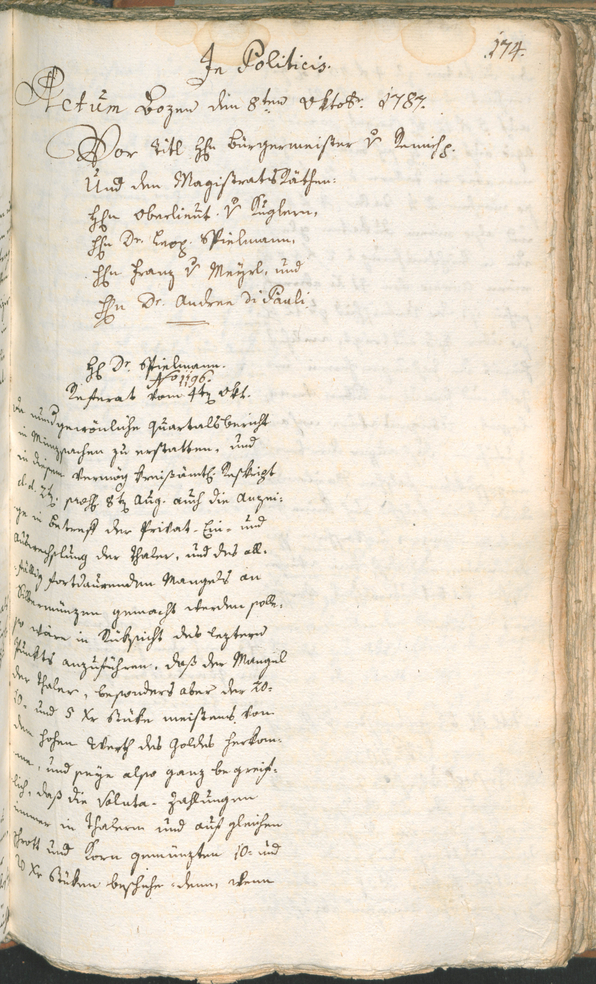 174.
In Politicis.
Actum Bozen den 8ten Oktobr. 1787.
Vor Titl Hn Bürgermeister v
Und den Magistrats Räthen:
Hhn Oberlieut. v Kuglern,
Hhn Dr. Leop. Spielmann,
Hhn Franz v Meyrl, und
Hhn Dr. Andree Di Pauli
H Dr. Spielmann.
No 1196.
Referat vom 4t Okt.
gewönliche Quartalsbericht
in Münzsachen zu erstatten, und
in diesem vermög Kreißämtl.
d.d. 2t. 8t Aug. auch die Anzei:
ge in Betreff der Privat-Ein- und
Auswechslung der Thaler, und des all:
fällig fortdaurenden Mangels an
Silbermünzen gemacht werden solle,
so wäre in Rücksicht des leztern
Punkts anzuführen, daß der Mangel
der Thaler, besonders aber der 20:
10- und 5 Xr Stüke meistens von
dem hohen Werth des Goldes herkom:
me, und seye also ganz begreif:
lich, daß die Valuta-Zahlungen
immer in Thalern und auf gleichen
Schrott und Korn gemünzten 10: und
20 Xr Stüken beschehe, denn, wenn